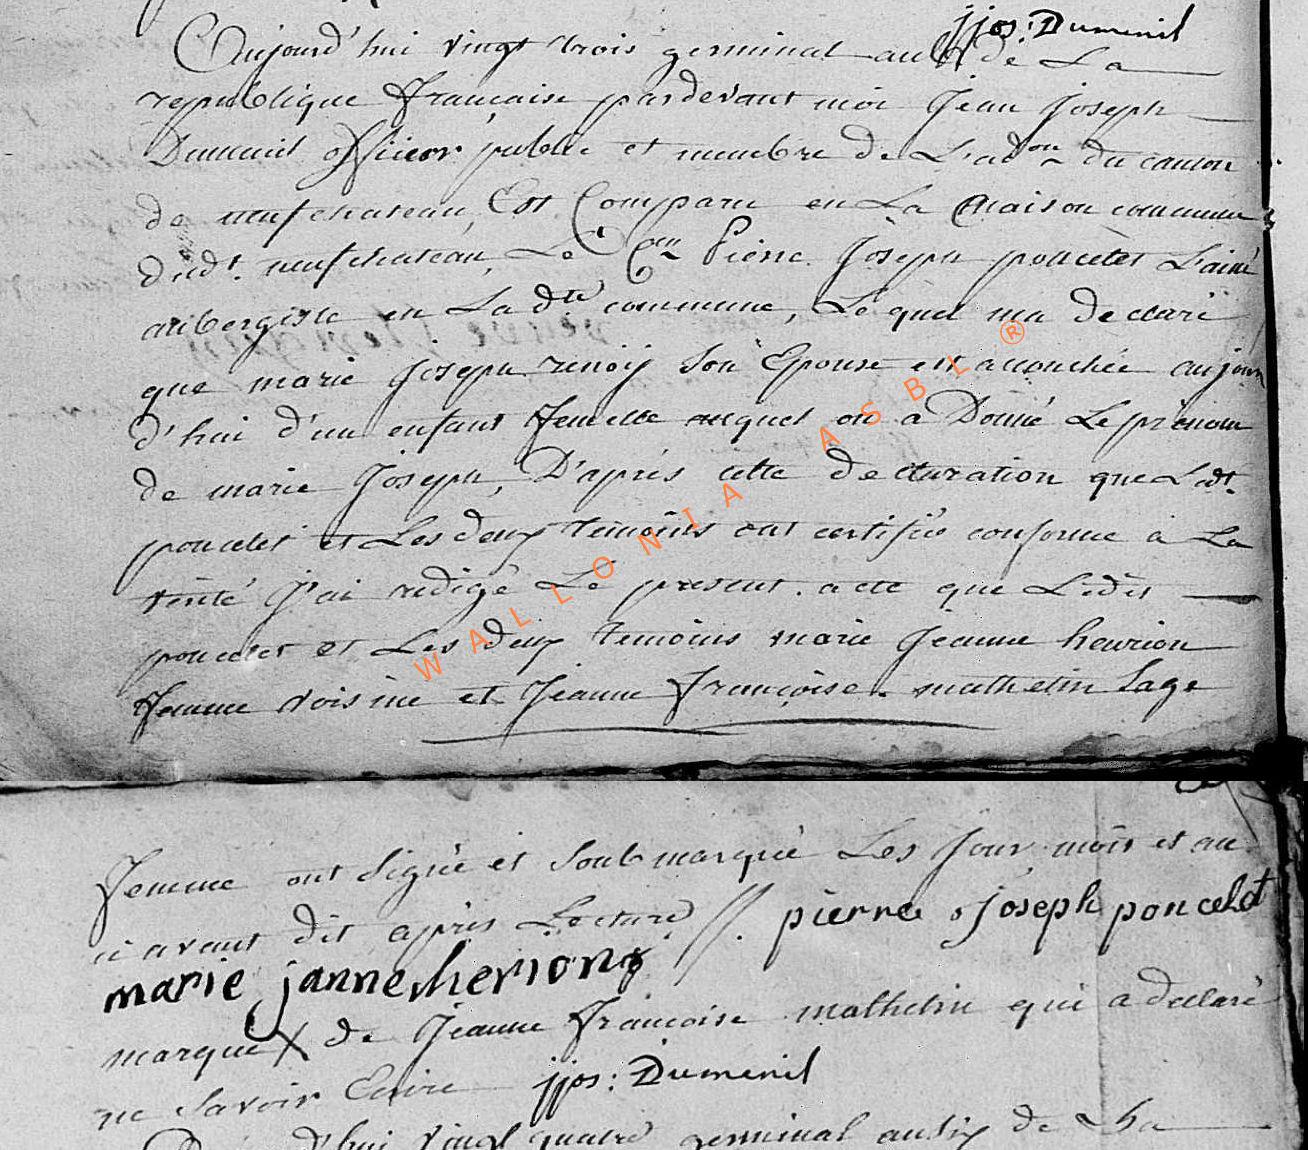 jjos: Dumenil
Aujourd'hui vingt trois germinal an 6 de La
republique francaise pardevant moi Jean joseph
Dumenil officier public et membre de L'adon du canton
de neufchateau Est Comparu en La Maison commune
dudt. neufchateau, Le Cen Pierre Joseph poncelet L'ainé
aubergiste en La dte commune, Lequel ma declaré
que marie joseph renoij Son Epouse est accouchée aujour
d'hui d'un enfant femelle auquel on a Donné Le prenom
de marie Joseph, D'après cette declaration que Ledt.
poncelet et Les deux temoins ont certifié conforme à La
verité J'ai redigé Le present acte que Ledit
poncelet et Les deux temoins marie Jeanne henrion
femme voisine et Jeanne françoise mathelin Sage
femme ont Signé et Soub marqué Les Jour mois et an
ci avant dit après Lecture //. pierre joseph poncelet
marie janne herion
marque X de Jeanne francoise mathelin qui a declaré
ne Savoir Ecrire jjos: Dumenil
d'hui vingt quatre germinal an six de La
WALLONIA ASBL ®